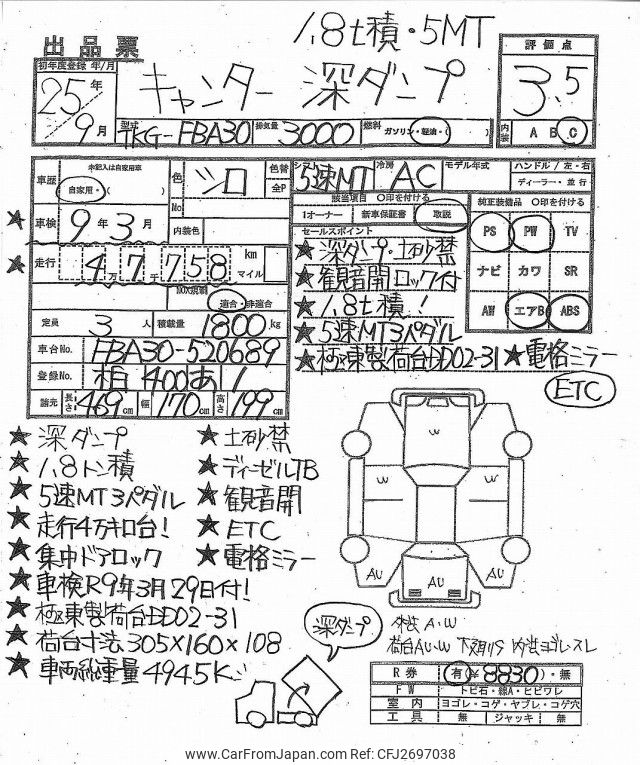 1.8t積・5MT
出品票
評価点
初年度登録 年/月
25年
9月
キャンター 深ダンプ
3.5
型式 TKG-FBA30 排気量 3000 燃料 ガソリン・軽油・( )
内装 A B C
車歴 未記入は自家用車
自家用・( )
色 シロ 色替 全P
No.
シフト 5速MT 冷房 AC モデル年式 ハンドル / 左・右
ディーラー・並行
該当項目 〇印を付ける
1オーナー 新車保証書 取説
純正装備品 〇印を付ける
PS PW TV
ナビ カワ SR
AW エアB ABS
★ 車検 9年3月 内装色
★ 走行 4万7千758 km マイル
NOX規制 適合・非適合
定員 3人 積載量 1800kg
車台No. FBA30-520689
登録No. 相 400 あ 1
諸元 長さ 469cm 幅 170cm 高さ 199cm
セールスポイント
★深ダンプ・土砂禁
★観音開ロック付
★1.8t積!
★5速MT3ペダル
★極東製荷台DD02-31 ★電格ミラー
ETC
★深ダンプ
★1.8トン積
★5速MT3ペダル
★走行4万キロ台!
★集中ドアロック
★車検R9年3月29日付!
★極東製荷台DD02-31
★荷台寸法305×160×108
★車両総重量4945K
★土砂禁
★ディーゼルTB
★観音開
★ETC
★電格ミラー
W
W
W
AU
AU
AU
深ダンプ
外装 A・W
荷台AU・W 下廻りS 内装ヨゴレスレ
R券 有(¥8830)・無
FW トビ石・線A・ヒビワレ
室内 ヨゴレ・コゲ・ヤブレ・コゲ穴
工具 無 ジャッキ 無
www.CarFromJapan.com Ref: CFJ2697038